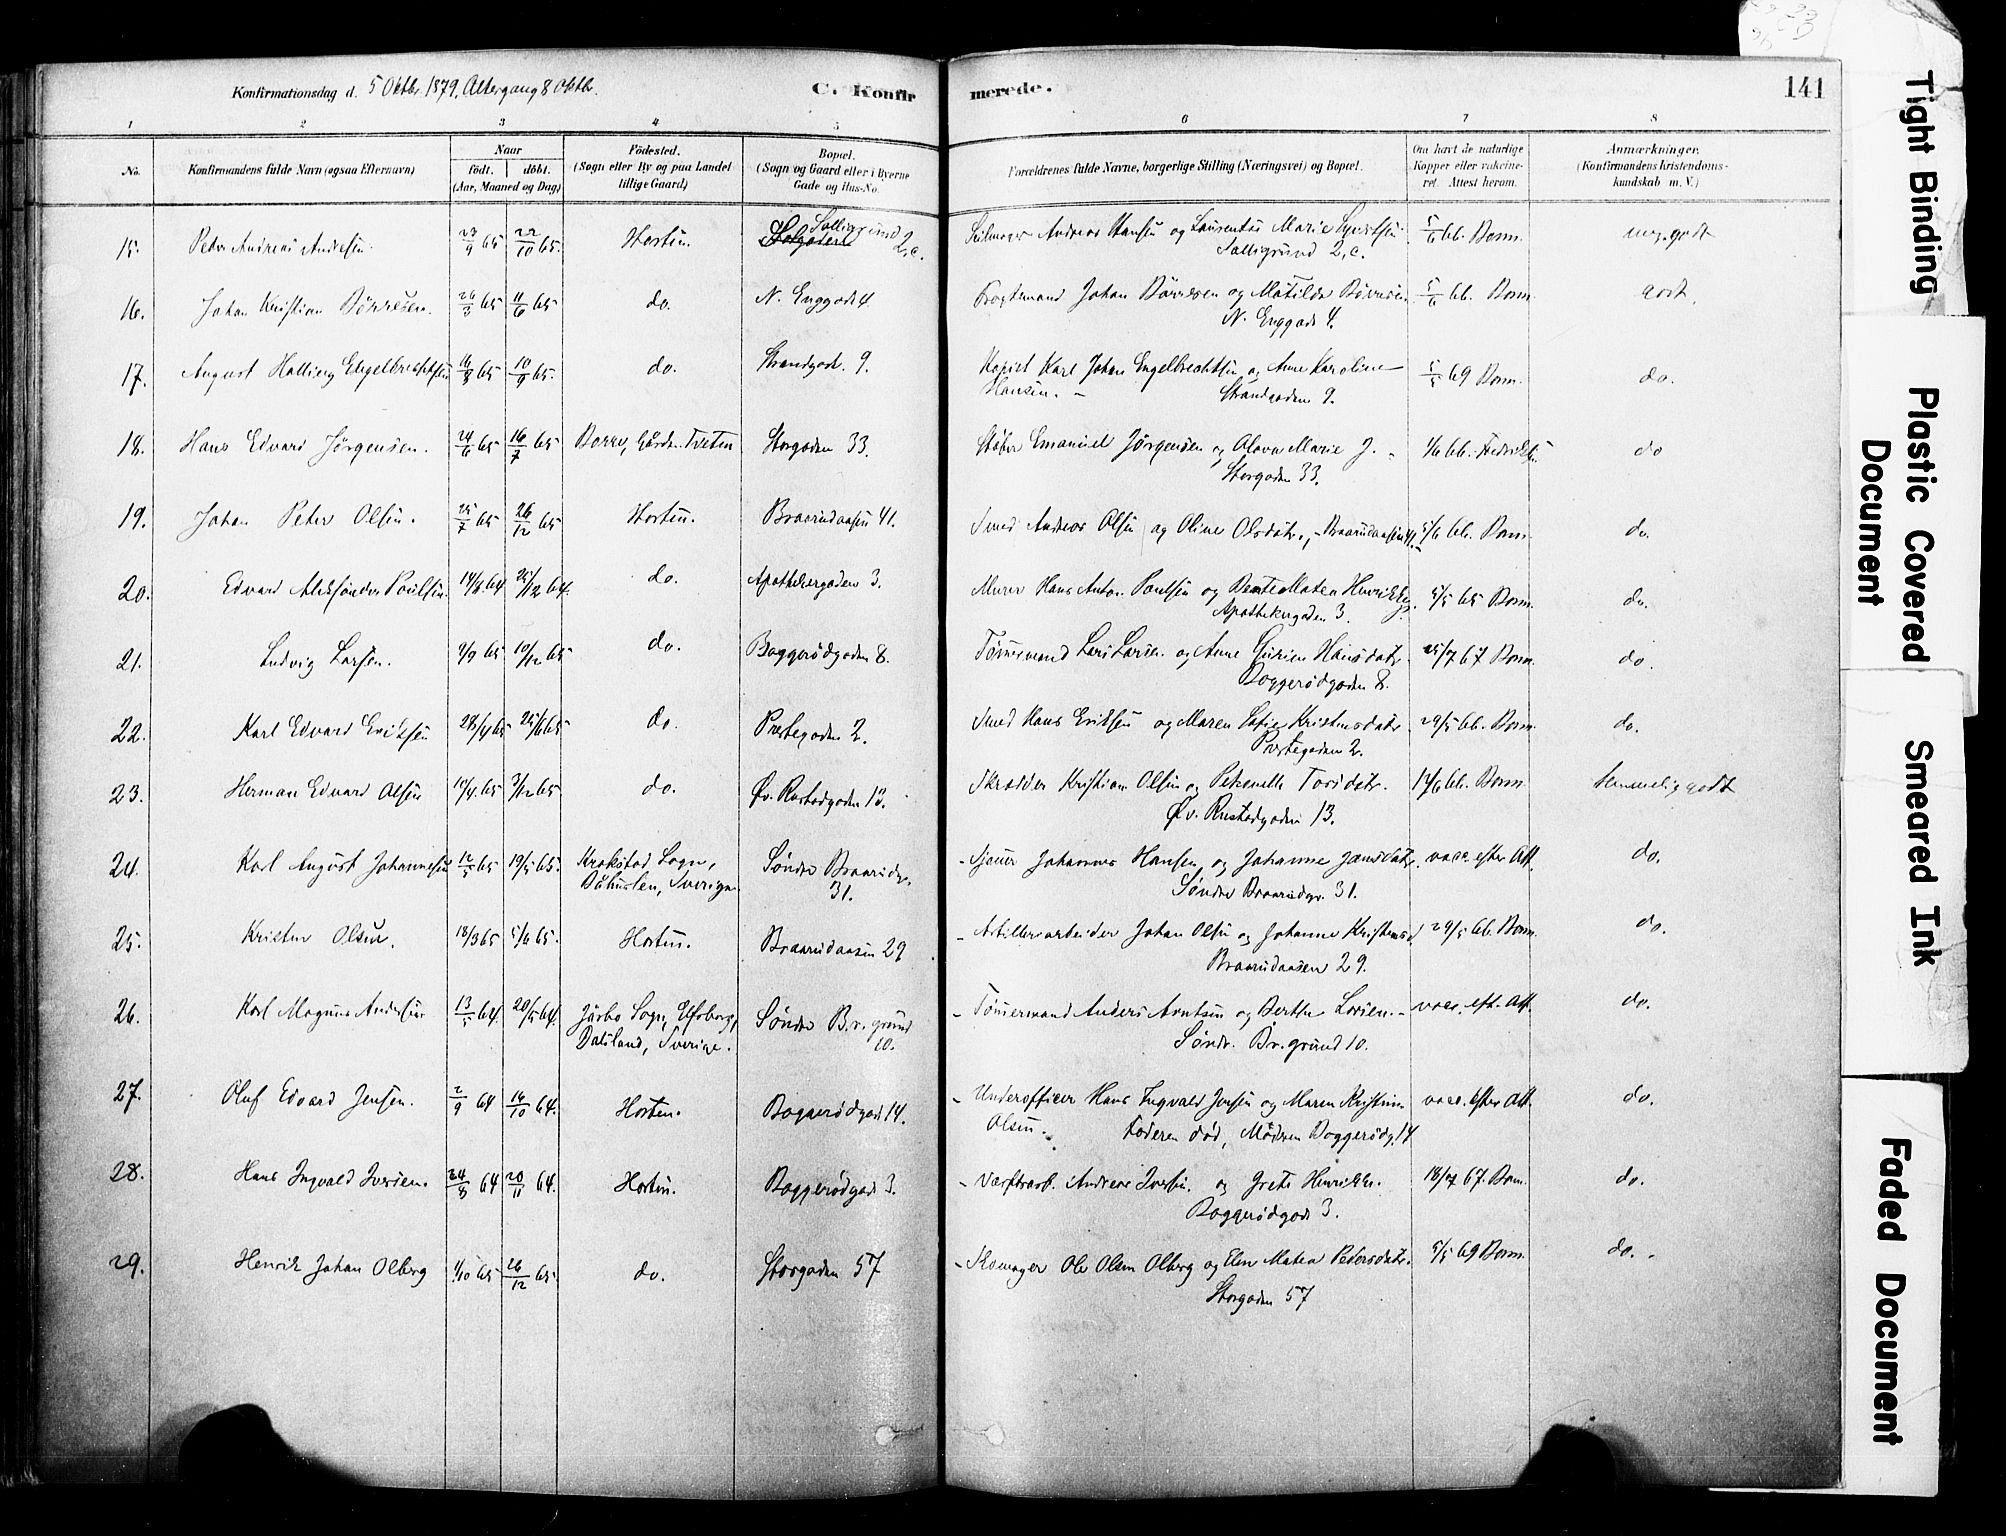 Konfirmationsdag d. 5 Oktbr. 1879, Altergang 8 Oktbr.
C. Konfirmerede.
141
1 2 3 4 5 6 7 8
No.
Konfirmandens fulde Navn (ogsaa Efternavn)
Naar
født. døbt.
(Aar, Maaned og Dag)
Fødested.
(Sogn eller By og paa Landet
tillige Gaard)
Bopæl.
(Sogn og Gaard eller i Byerne
Gade og Hus-No.
Forældrenes fulde Navne, borgerlige Stilling (Næringsvei) og Bopæl.
Om havt de naturlige
Kopper eller vakcine-
ret. Attest herom.
Anmærkninger.
(Konfirmandens Kristendoms-
kundskab m. V.)
15. Peder Andreas Andersen 23/9 65 22/10 65. Horten. Solligrund 2, c. Seilmager Andreas Hansen og Laurentse Marie 5/6 66. Borm. meg. godt
Solligrund 2, c.
16. Johan Kristian Børresen. 26/3 65 11/6 65 do. N. Enggade 4 Fragtemand Johan Børresen og Matilde Børresen 5/6 66. Borm. godt.
N. Enggade 4.
17. August Halling Engelbrechtsen 16/8 65 10/9 65. do. Strandgad. 9. Kopist Karl Johan Engelbrechtsen og Anne Karoline 5/5 69 Borm. do.
Hansen. - Strandgaden 9.
18. Hans Edvard Jørgensen. 24/6 65 16/7 65 Borre, Gården Tveten Storgaden 33. Støber Emanuel Jørgensen og Olava Marie J. 1/6 66. do
Storgaden 33.
19. Johan Peter Olsen. 25/7 65 26/12 65 Horten. Braarudaasen 41. Smed Andreas Olsen og Oline Olsdatr., - Braarudaasen 41. 5/6 66. Borm. do.
20. Edvard Aleksander Poulsen. 14/8 64 25/12 64. do. Apothekergaden 3. Murer Hans Anton Poulsen og Bente Matea 5/5 65 Borm. do.
Apothekergaden 3.
21. Ludvig Larsen. 9/9 65 10/12 65 do. Baggerødgaden 8. Tømmermand Lars Larsen og Anne Gurine Hansdatr. 25/7 67 Borm. do.
Baggerødgaden 8.
22. Karl Edvard Eriksen 28/4 65 25/6 65 do. Prestegaden 2. Smed Hans Eriksen og Maren Sofie Kristensdatr. 29/5 66. Borm. do.
Prestegaden 2.
23. Herman Edvard Olsen 10/4 65 3/12 65 do. Øv. Rustadgaden 13. Skrædder Kristian Olsen og Petronelle Torsdatr. 17/6 66. Borm. temmelig godt
Øv. Rustadgaden 13.
24. Karl August Johannesen 12/5 65 19/5 65. Krokstad Sogn, Søndre Braarudgr. - Sjauer Johannes Hansen og Johanne Jansdatr. vacc. efter Att. do.
Båhuslen, Sverige. 31. Søndre Braarudgr. 31.
25. Kristen Olsen. 18/3 65 5/6 65. Horten. Braarudaasen 29 - Artilleriarbeider Johan Olsen og Johanne Kristensd. 29/5 66. Borm. do.
Braarudaasen 29.
26. Karl Magnus Andersen 13/5 64. 20/5 64. Järbo Sogn, Elfsborg, Søndre Br. grund - Tømmermand Anders Arntsen og Berthe Larsen. - vacc. eft. Att. do.
Dalsland, Sverige. 10. Søndr. Br. grund 10.
27. Oluf Edvard Jensen. 2/9 64 16/10 64. Horten. Baggerødgad. 14. - Underofficer Hans Ingvald Jensen og Maren Kristine vacc. efter Att. do.
Olsen. - Faderen død, Modren Baggerødg. 14
28. Hans Ingvald Iversen. 24/8 64 20/11 64. Horten. Baggerødgade 3. - Værftsarb. Andreas Iversen og Grete Henrikke. 18/7 67. Borm. do.
Baggerødgade 3.
29. Henrik Johan Olberg 1/10 65 26/12 65 do. Storgaden 57 - Skomager Ole Olsen Olberg og Elen Matea Pedersdatr. 5/5 69 Borm. do. -
Storgaden 57
Tight Binding
Plastic Covered Document
Smeared Ink
Faded Document